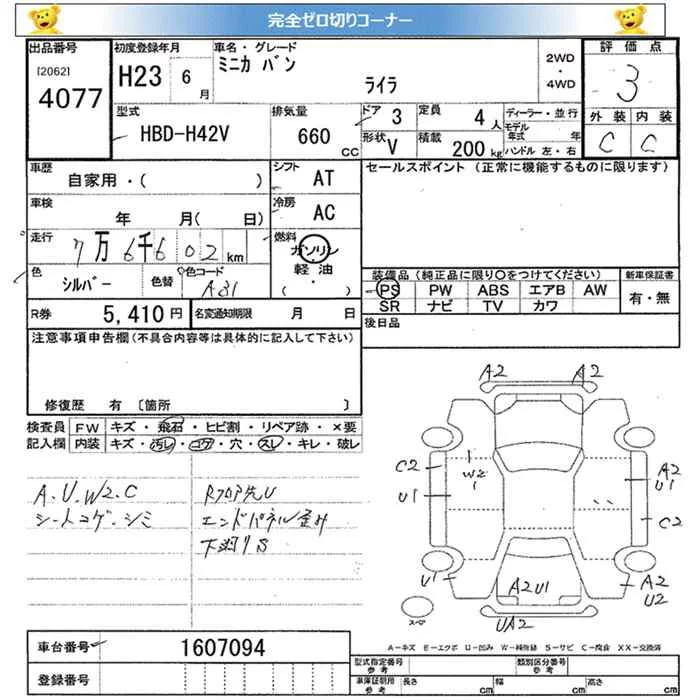 完全ゼロ切りコーナー
出品番号
[2062]
4077
初度登録年月
H23 6月
車名・グレード
ミニカ バン
ライラ
2WD
・
4WD
評価点
3
外装 内装
C C
型式
HBD-H42V
排気量
660 CC
ドア 3
定員 4人
形状 V
積載 200kg
ディーラー・並行
モデル年式 年
ハンドル 左・右
車歴
自家用・( )
シフト
AT
セールスポイント (正常に機能するものに限ります)
車検
年 月( 日)
冷房
AC
走行
7万6千602km
燃料
ガソリン
軽油
・
( )
色
シルバー
色替
色コード
A31
装備品 (純正品に限り○をつけてください)
新車保証書
PS PW ABS エアB AW
SR ナビ TV カワ
有・無
R券 5,410円
名変通知期限 月 日
後日品
注意事項申告欄(不具合内容等は具体的に記入して下さい)
修復歴 有 〔箇所 〕
検査員 FW キズ・飛石・ヒビ割・リペア跡・×要
記入欄 内装 キズ・汚レ・コゲ・穴・スレ・キレ・破レ
A.U.W2.C
シートコゲ・シミ
Rフロア先U
エンドパネル歪み
下廻りS
A2 A2
C2
W2
U1
A2
U1
C2
U1
A2U1
A2
U2
UA2
スペア
A-キズ E-エクボ U-凹み W-補修跡 S-サビ C-腐食 XX-交換済
車台番号
1607094
登録番号
型式指定番号
参考
類別区分番号
参考
車庫証明用
参考
長さ cm 幅 cm 高さ cm